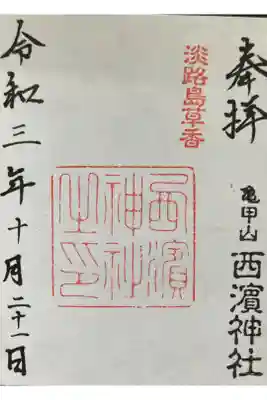 奉拝
亀甲山 西濱神社
淡路島草香
西濱
神社
之印
令和三年十月二十一日